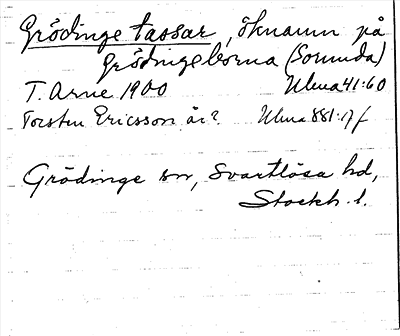 Grödinge tassar, öknamn på
Grödingeborna (Sorunda)
T. Arne 1900 Ulma 41:60
Torsten Ericsson år? Ulma 881:17 f
Grödinge sn, Svartlösa hd,
Stockh. l.